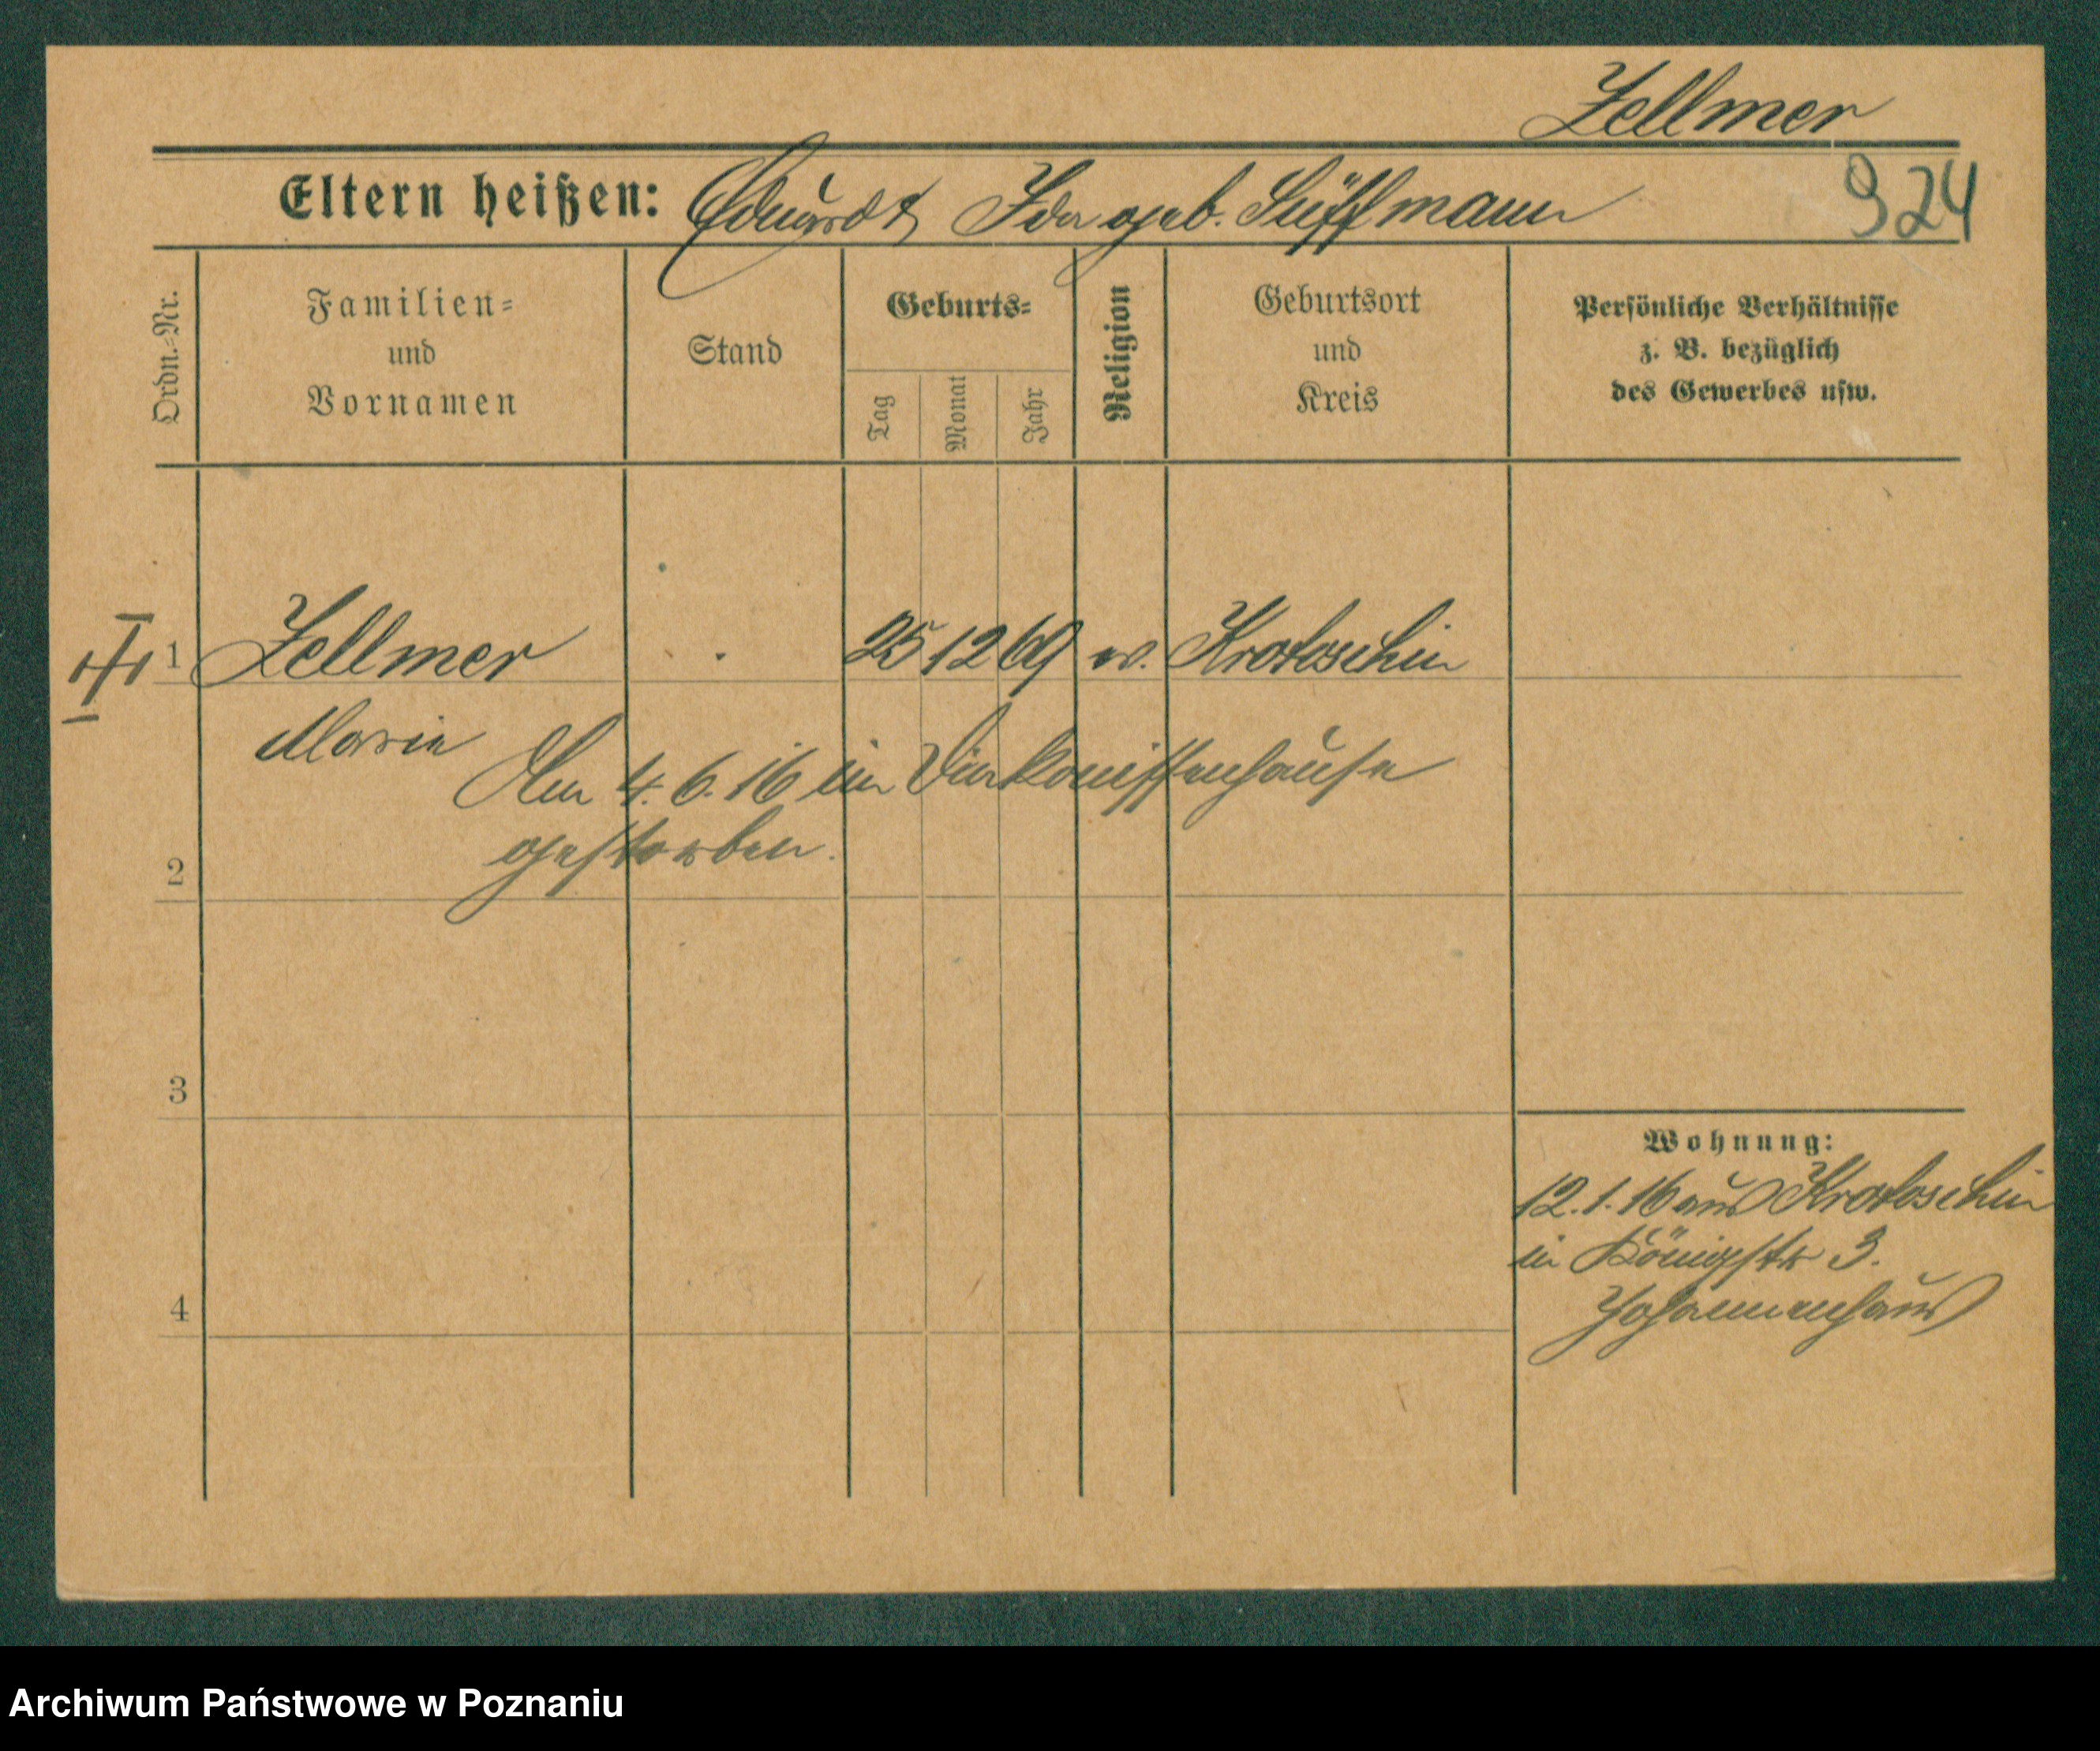 Zellmer
Eltern heißen: Eduard † Ida geb. Süffmann
924
Ordn.-Nr.
Familien=
und
Vornamen
Stand
Geburts=
Tag
Monat
Jahr
Religion
Geburtsort
und
Kreis
Persönliche Verhältnisse
z. B. bezüglich
des Gewerbes usw.
1 Zellmer 25 12 69 ev. Krotoschin
Marie
Am 4. 6. 16 im Diakonissenhause
gestorben.
2
3
4
Wohnung:
12. 1. 16 aus Krotoschin
in Königstr 3.
Johannenhaus
Archiwum Państwowe w Poznaniu